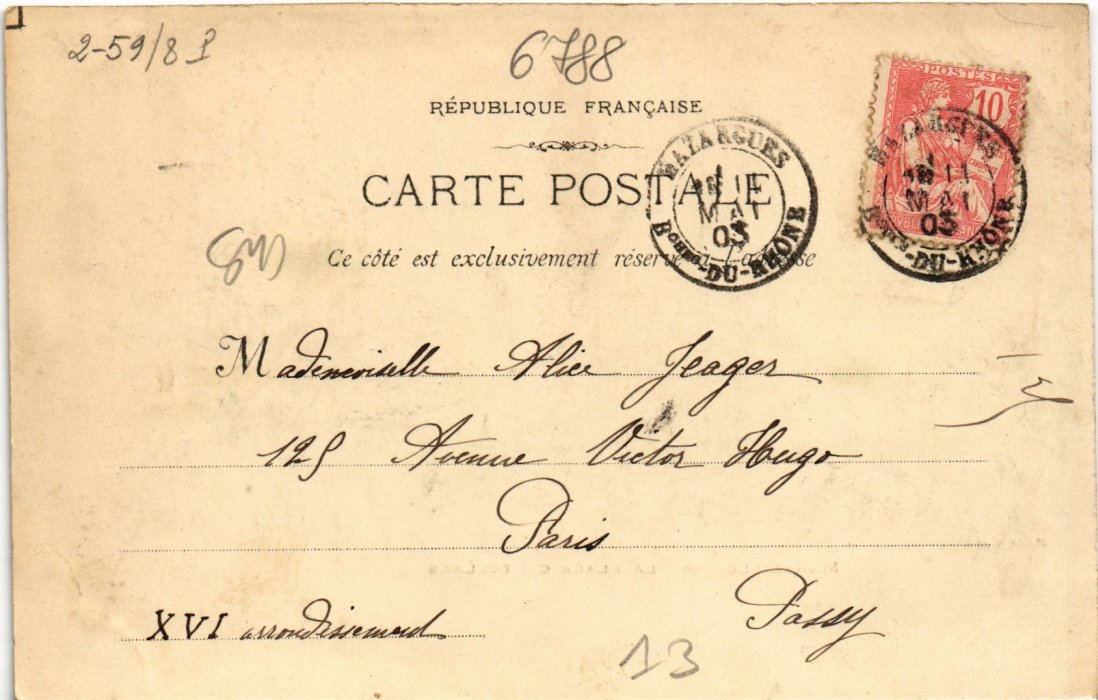 2-59/8
6788
RÉPUBLIQUE FRANÇAISE
POSTES
10
CARTE POSTALE
MAZARGUES
11
MAI
03
Bches-DU-RHÔNE
MAZARGUES
11
MAI
03
Bches-DU-RHÔNE
Ce côté est exclusivement réservé à l'adresse
Mademoiselle Alice Jeager
125 Avenue Victor Hugo
Paris
XVI arrondissement
Passy
13